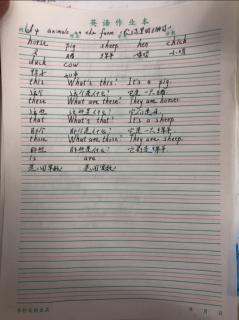 英语作业本
U4 animals on the farm
horse pig sheep hen chick
马 猪 绵羊 小鸡
duck cow
鸭子 奶牛
this What's this? It's a pig.
这个 这是什么? 它是一只猪
these What are these? They are horses
这些 这些是什么?
that What's that? It's a sheep
那个 那是什么? 它是一只绵羊
those What are those? They are sheep.
那些 那些是什么? 绵羊
is are
月 日